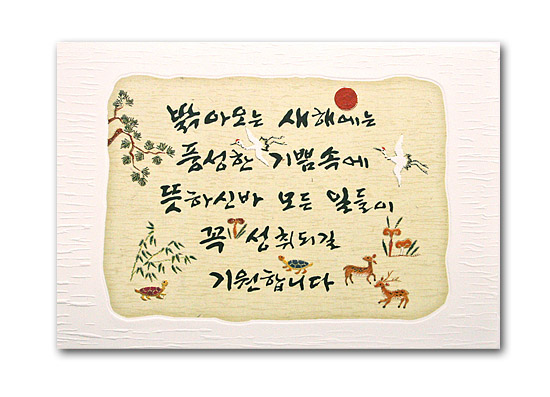 밝아오는 새해에는
풍성한 기쁨속에
뜻하신바 모든 일들이
꼭 성취되길
기원합니다